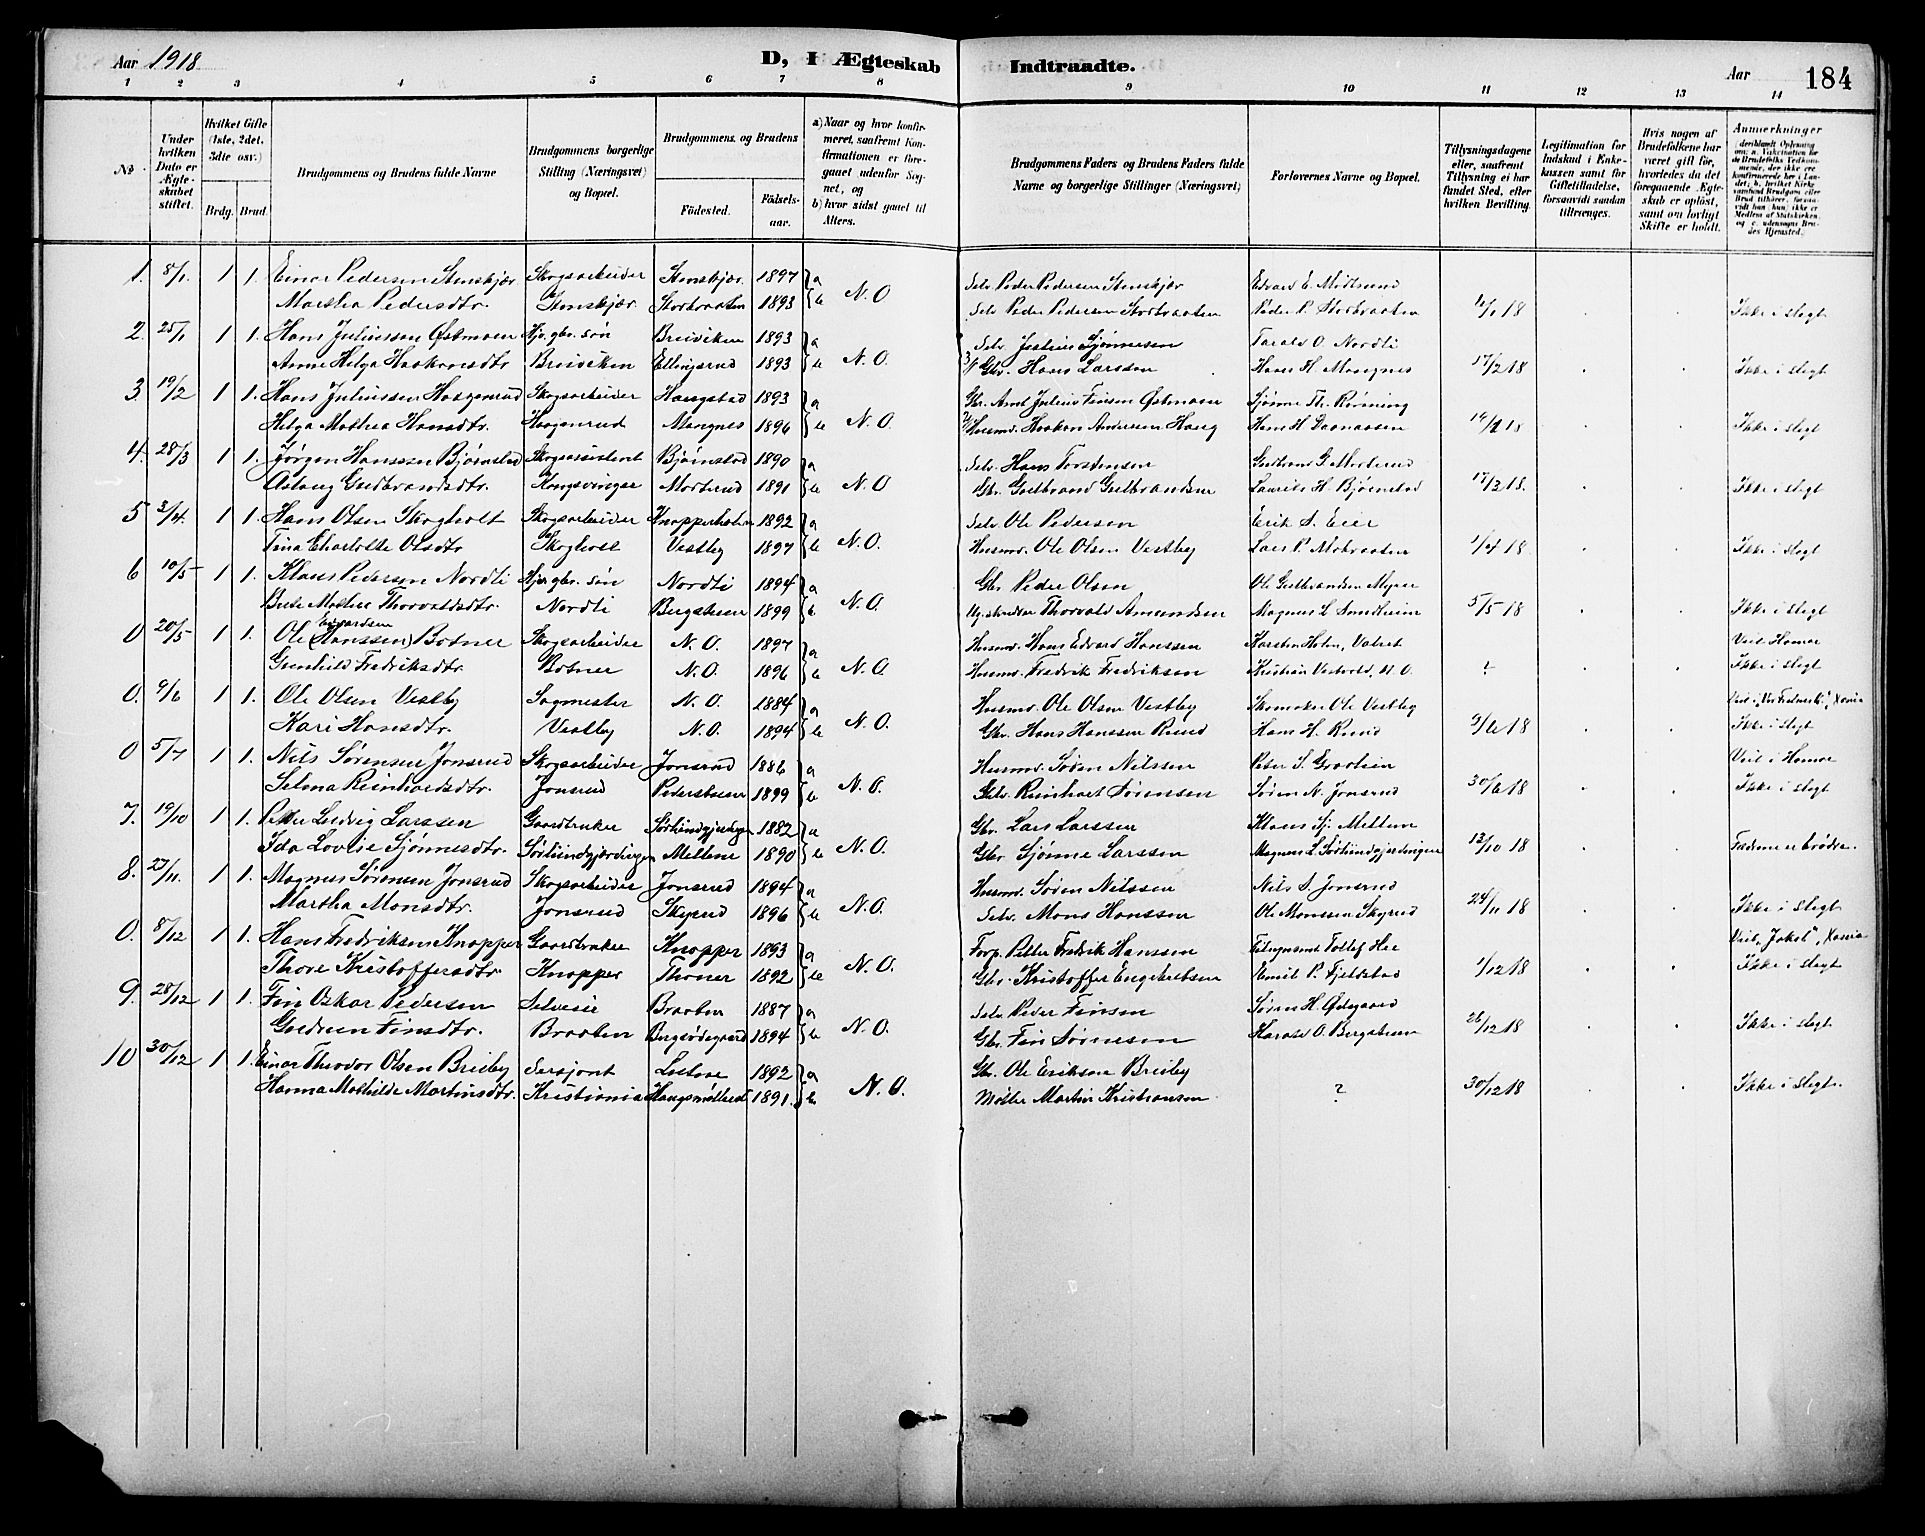 Aar 1918
D, I Ægteskab Indtraadte.
Aar 184
1 2 3 4 5 6 7 8 9 10 11 12 13 14
No
Under hvilken Dato er Ægteskabet stiftet.
Hvilket Gifte (1ste, 2det, 3die osv.)
Brdg. Brud.
Brudgommens og Brudens fulde Navne
Brudgommens borgerlige Stilling (Næringsvei) og Bopæl.
Brudgommens og Brudens
Födested. Födselsaar.
a) Naar og hvor konfirmeret, saafremt Konfirmationen er foregaaet udenfor Sognet, og
b) hvor sidst gaaet til Alters.
Brudgommens Faders og Brudens Faders fulde Navne og borgerlige Stillinger (Næringsvei)
Forlovernes Navne og Bopæl.
Tillysningsdagene eller, saafremt Tillysning ei har fundet Sted, efter hvilken Bevilling.
Legitimation for Indskud i Enkekassen samt for Giftetilladelse, forsaavidt saadan tiltrænges.
Hvis nogen af Brudefolkene har været gift för, hvorledes da det foregaaende Ægteskab er oplöst, samt om lovligt Skifte er holdt.
Anmerkninger
1. 8/1 1 1. Einar Pedersen Stenskjær Skogsarbeider Stenskjær 1897 a Selv. Peder Pedersen Stenskjær Edvard E. Midtsund
Martha Pedersdtr. Stenskjær Storbraaten 1893 b N.O Selv. Peder Pedersen Storbraaten Peder P. Storbraaten 6/1 18 Ikke i slegt
2. 25/1 1 1. Hans Juliussen Østmoen Hjs. gbr. søn Breiviken 1893 a Selv. Justius Sjønnesen Tarald O. Nordli
Anne Helga Haakonsdtr. Breiviken Ellingsrud 1893 b N.O Gbr. Hans Larssen Hans H. Mangnes 17/2 18 Ikke i slegt
3. 19/2 1 1. Hans Juliussen Haagenrud Skogsarbeider Haugstad 1893 a Gbr. Amt Julius Finsen Østmoen Sjønne Th. Rønning
Helga Mathea Hansdtr. Haagenrud Mangnes 1896 b N.O Husmd. Haakon Andersen Haug Hans H. 14/2 18 Ikke i slegt
4. 28/3 1 1. Jørgen Hanssen Bjørnstad Skogassistent Bjørnstad 1890 a Selv. Hans Torstensen Gudbrand G. Morterud
Aslaug Gudbrandsdtr. Kongsvinger Morterud 1891 b N.O Gbr. Gudbrand Gudbrandsen Laurits H. Bjørnstad 17/3 18. Ikke i slegt
5 3/4. 1 1. Hans Olsen Skogholt Skogsarbeider 1892 a Selv. Ole Pedersen Erik S. Eier
Tina Charlotte Olsdtr Skogholt Vestby 1897 b N.O. Husmd. Ole Olsen Vestby Lars P. 1/4 18 Ikke i slegt
6 10/5 1 1. Klaus Pedersen Nordli Hjs gbr. søn Nordli 1894 a Gbr. Peder Olsen Ole Gudbrandsen Myrer
Mathea Thorvaldsdtr. Nordli Bergstuen 1899 b. N.O. Thorvald Amundsen Magnus L. Sundheim 5/5 18 Ikke i slegt
0 20/5 1 1. Ole Edvardsen (Hanssen) Botner Skogsarbeider N.O. 1897 a Husmd. Hans Edvard Hanssen Karsten Holen, Valeret Viet i Hamar
Gunhild Fredriksdtr. Botner N.O. 1896 b N.O Husmd. Fredrik Fredriksen Kristian Vestvold, N.O. ÷ Ikke i slegt
0. 9/6 1 1. Ole Olsen Vestby Sagmester N.O. 1884 a Husmd. Ole Olsen Vestby Skomaker Ole Vestby
Kari Hansdtr. Vestby N.O. 1894 b N.O. Gbr. Hans Hanssen Rund Hans H. Rund 9/6 18 Ikke i slegt
0 5/7 1 1. Nils Sørensen Jonsrud Skogsarbeider Jonsrud 1886 a Husmd. Søren Nilssen Peter S. Viet i Hamar
Selma Reinhardsdtr. Jonsrud Pederstuen 1899 b N.O. Selv. Reinhart Sørensen Søren N. Jonsrud 30/6 18 Ikke i slegt
7. 19/10 1 1. Peter Ludvig Larssen Gaardbruker 1882 a Gbr. Lars Larssen Klaus Sj. Mellem
Ida Lovise Sjønnesdtr. Mellem 1890 b N.O. Gbr. Sjønne Larssen 13/10 18 Fædrene er brødre.
8. 27/11. 1 1. Magnus Sørensen Jonsrud Skogsarbeider Jonsrud 1894 a Husmd. Søren Nilssen Nils S. Jonsrud
Martha Monsdtr. Jonsrud Skyrud 1896 b N.O. Selv. Mons Hanssen Ole Monssen Skyrud 24/11 18 Ikke i slegt
0. 8/12 1 1. Hans Fredriksen Knapper Gaardbruker Knapper 1893 a Forp. Peter Fredrik Hanssen Viet i "Jakob", Xania
Thora Kristoffersdtr. Knapper Thoner 1892 b N.O. Gbr. Kristoffer Engebretsen Emil P. Fjeldstad 1/12 18 Ikke i slegt
9. 28/12 1 1. Fin Oskar Pedersen Selveier Braaten 1887 a Selv. Peder Finsen Søren H. Ødegaard
Gudrun Finsdtr. Braaten Bergsødegaard 1894 b N.O. Gbr. Fin Sørensen Harald O. Bergstuen 26/12 18 Ikke i slegt
10 30/12 1 1. Einar Theodor Olsen Breiby Sersjant 1892 a Gbr. Ole Eriksen Breiby
Hanna Mathilde Martinsdtr. Kristiania 1891. b. N.O. Møller Martin Kristiansen ? 30/12 18 Ikke i slegt.